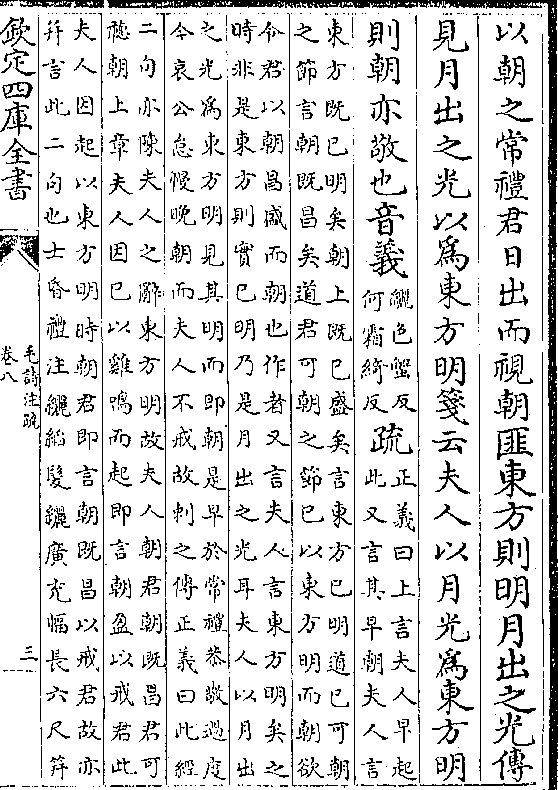 以朝之常禮君日出而視朝匪東方則明月出之光傳
見月出之光以爲東方明箋云夫人以月光爲東方明
則朝亦敬也音義
纚色蟹反
何霜綺反
疏
正義曰上言夫人早起
此又言其早朝夫人言
東方既已明矣朝上既已盛矣言東方已明道已可朝
之節言朝既昌矣道君可朝之節已以東方明而朝欲
令君以朝昌盛而朝也作者又言夫人言東方明矣之
時非是東方則實已明乃是月出之光耳夫人以月出
之光爲東方明見其明而即朝是早於常禮恭敬過度
今哀公怠慢晚朝而夫人不戒故刺之傳正義曰此經
二句亦陳夫人之辭東方明故夫人朝君朝既昌君可
聽朝上章夫人因已以雞鳴而起即言朝盈以戒君此
夫人因起以東方明時朝君即言朝既昌以戒君故亦
并言此二句也士昏禮注纚縚髮纚廣充幅長六尺笄
欽定四庫全書
毛詩注疏
卷八
三